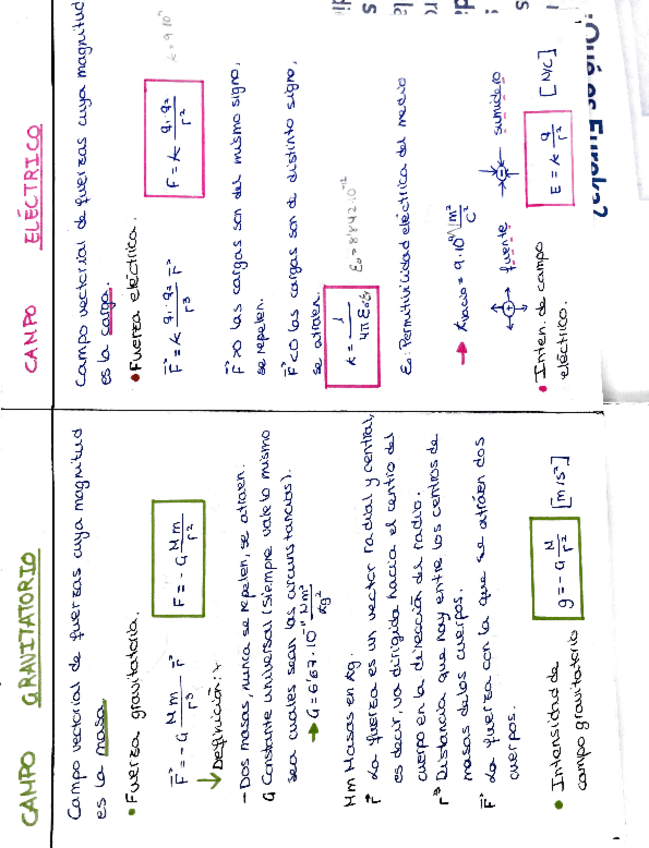 CAMPO GRAVITATORIO
Campo vectorial de fuerzas cuya magnitud
es la masa.
• Fuerza gravitatoria.
F⃗ = -G Mm/r³ r⃗
F = -G Mm/r²
↓ Definición: +
- Dos masas, nunca se repelen, se atraen.
G Constante universal (siempre vale lo mismo
sea cuales sean las circunstancias).
→ G = 6'67·10⁻¹¹ Nm²/kg²
Mm Masas en kg.
r⃗ La fuerza es un vector radial y central,
es decir, va dirigida hacia el centro del
cuerpo en la dirección del radio.
r Distancia que hay entre los centros de
masas de los cuerpos.
F⃗ La fuerza con la que se atráen dos
cuerpos.
• Intensidad de
campo gravitatorio
g = -G M/r² [m/s²]
CAMPO ELÉCTRICO
Campo vectorial de fuerzas cuya magnitud
es la carga.
• Fuerza eléctrica.
F⃗ = k q₁·q₂/r³ r⃗
F = k q₁·q₂/r²
k = 9·10⁹
F⃗ > 0 las cargas son del mismo signo,
se repelen.
F⃗ < 0 las cargas son de distinto signo,
se atraen.
k = 1/4π ε₀εr
ε₀ = 8'842·10⁻¹²
ε₀: Permitividad eléctrica del medio
→ Kvacio = 9·10⁹ Nm²/C²
fuente
sumidero
• Inten. de campo
eléctrico.
E = k q/r² [N/C]
¿Qué es Eureka?